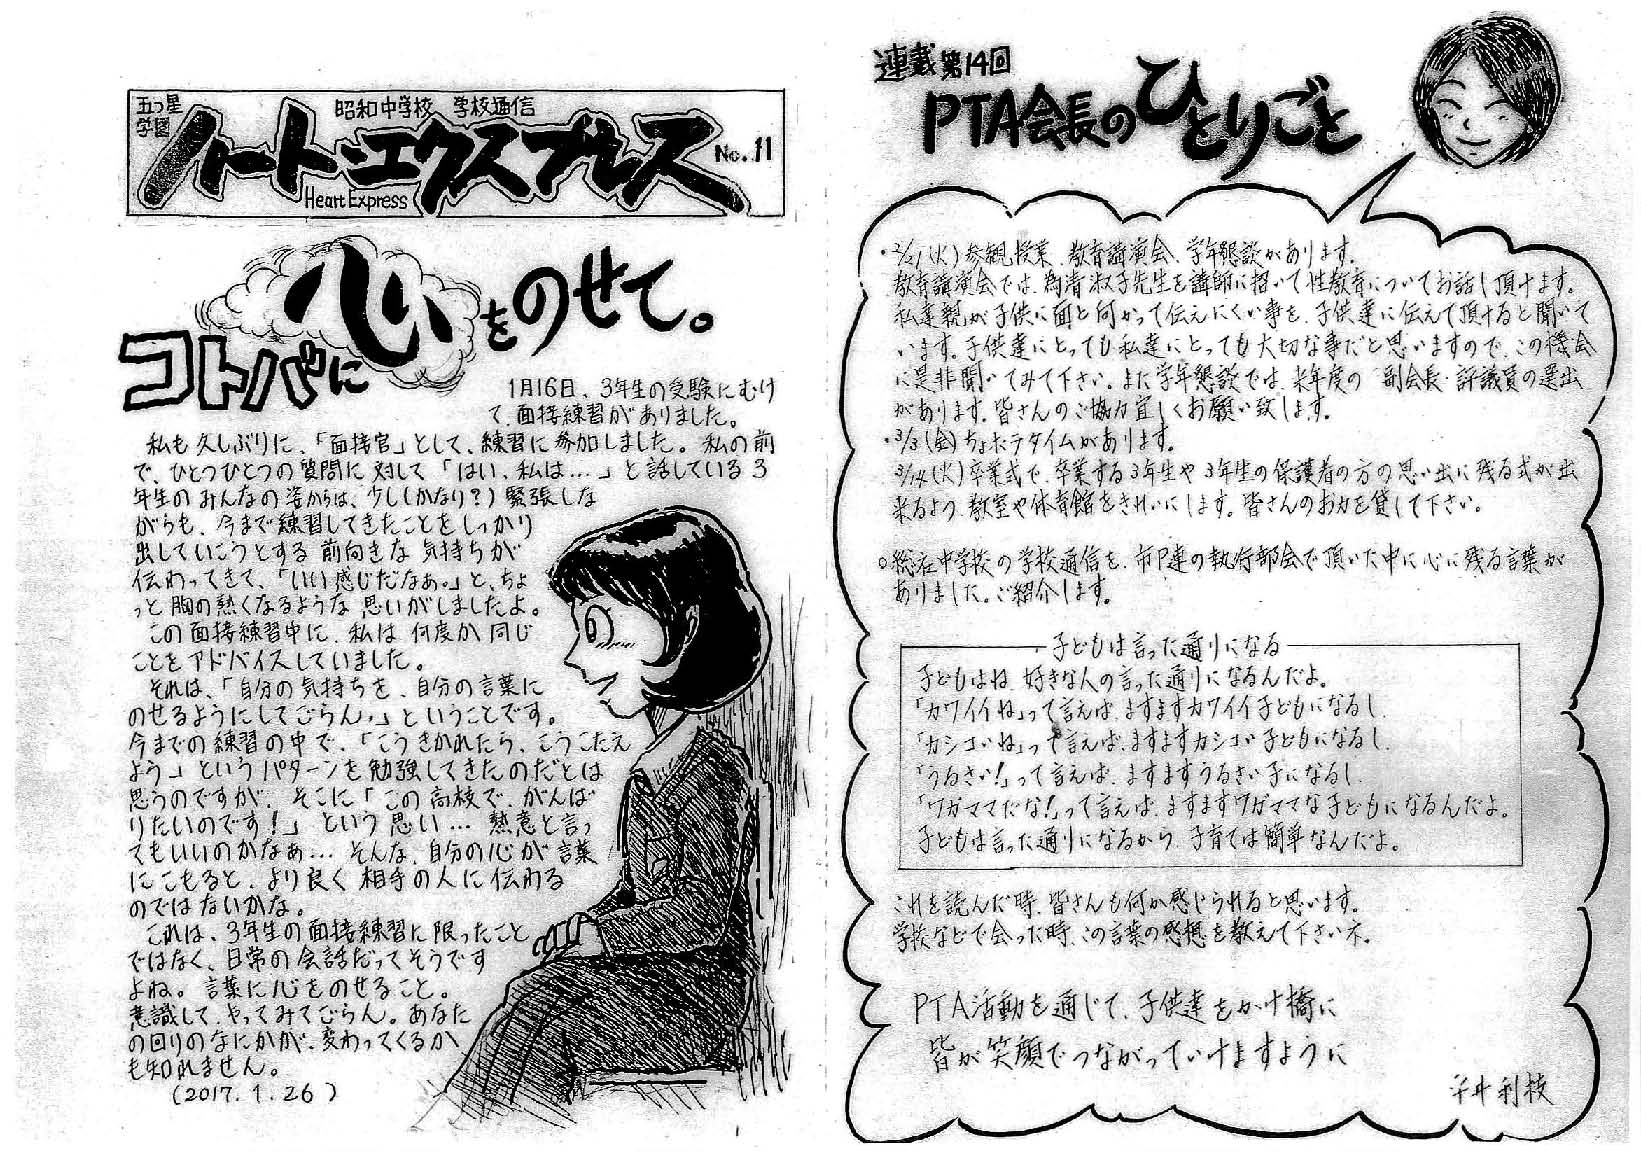 五つ星
学園
昭和中学校 学校通信
ハート・エクスプレス
Heart Express
No.11
コトバに心をのせて。
1月16日、3年生の受験にむけ
て、面接練習がありました。
私も久しぶりに、「面接官」として、練習に参加しました。私の前
で、ひとつひとつの質問に対して「はい、私は…」と話している3
年生のみんなの姿からは、少し(かなり?)緊張しな
がらも、今まで練習してきたことをしっかり
出していこうとする前向きな気持ちが
伝わってきて、「いい感じだなあ。」と、ちょ
っと胸の熱くなるような思いがしましたよ。
この面接練習中に、私は何度か同じ
ことをアドバイスしていました。
それは、「自分の気持ちを、自分の言葉に
のせるようにしてごらん。」ということです。
今までの練習の中で、「こうきかれたら、こうこたえ
よう」というパターンを勉強してきたのだとは
思うのですが、そこに「この高校で、がんば
りたいのです!」という思い…熱意と言っ
てもいいのかなあ…そんな、自分の心が言葉
にこもると、より良く相手の人に伝わる
のではないかな。
これは、3年生の面接練習に限ったこと
ではなく、日常の会話だってそうです
よね。言葉に心をのせること。
意識して、やってみてごらん。あなた
の回りのなにかが、変わってくるか
も知れません。
(2017.1.26)
連載第14回
PTA会長のひとりごと
・2/21(火)参観授業、教育講演会、学年懇談があります。
教育講演会では、為清淑子先生を講師に招いて性教育についてお話し頂けます。
私達親が子供に面と向かって伝えにくい事を、子供達に伝えて頂けると聞いて
います。子供達にとっても私達にとっても大切な事だと思いますので、この機会
に是非聞いてみて下さい。また学年懇談では、来年度の副会長・評議員の選出
があります。皆さんのご協力宜しくお願い致します。
・3/3(金)ちょボラタイムがあります。
3/14(火)卒業式で、卒業する3年生や3年生の保護者の方の思い出に残る式が出
来るよう、教室や体育館をきれいにします。皆さんのお力を貸して下さい。
○総社中学校の学校通信を、市P連の執行部会で頂いた中に心に残る言葉が
ありました。ご紹介します。
子どもは言った通りになる
子どもはね、好きな人の言った通りになるんだよ。
「カワイイね」って言えば、ますますカワイイ子どもになるし、
「カシコいね」って言えば、ますますカシコい子どもになるし、
「うるさい!」って言えば、ますますうるさい子になるし、
「ワガママだな!」って言えば、ますますワガママな子どもになるんだよ。
子どもは言った通りになるから、子育ては簡単なんだよ。
これを読んだ時、皆さんも何か感じられると思います。
学校などで会った時、この言葉の感想を教えて下さいネ。
PTA活動を通じて、子供達をかけ橋に
皆が笑顔でつながっていけますように
利枝